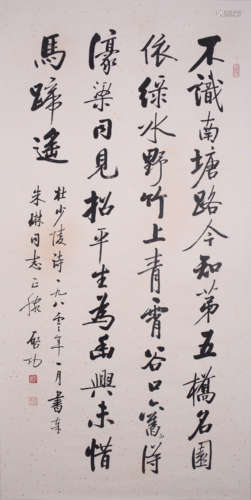 不識南塘路今知第五橋名園
依綠水野竹上青霄谷口舊得
濠梁同見招平生為幽興未惜
馬蹄遙
杜少陵詩一九八〇年一月書奉
朱琳同志正 啟功